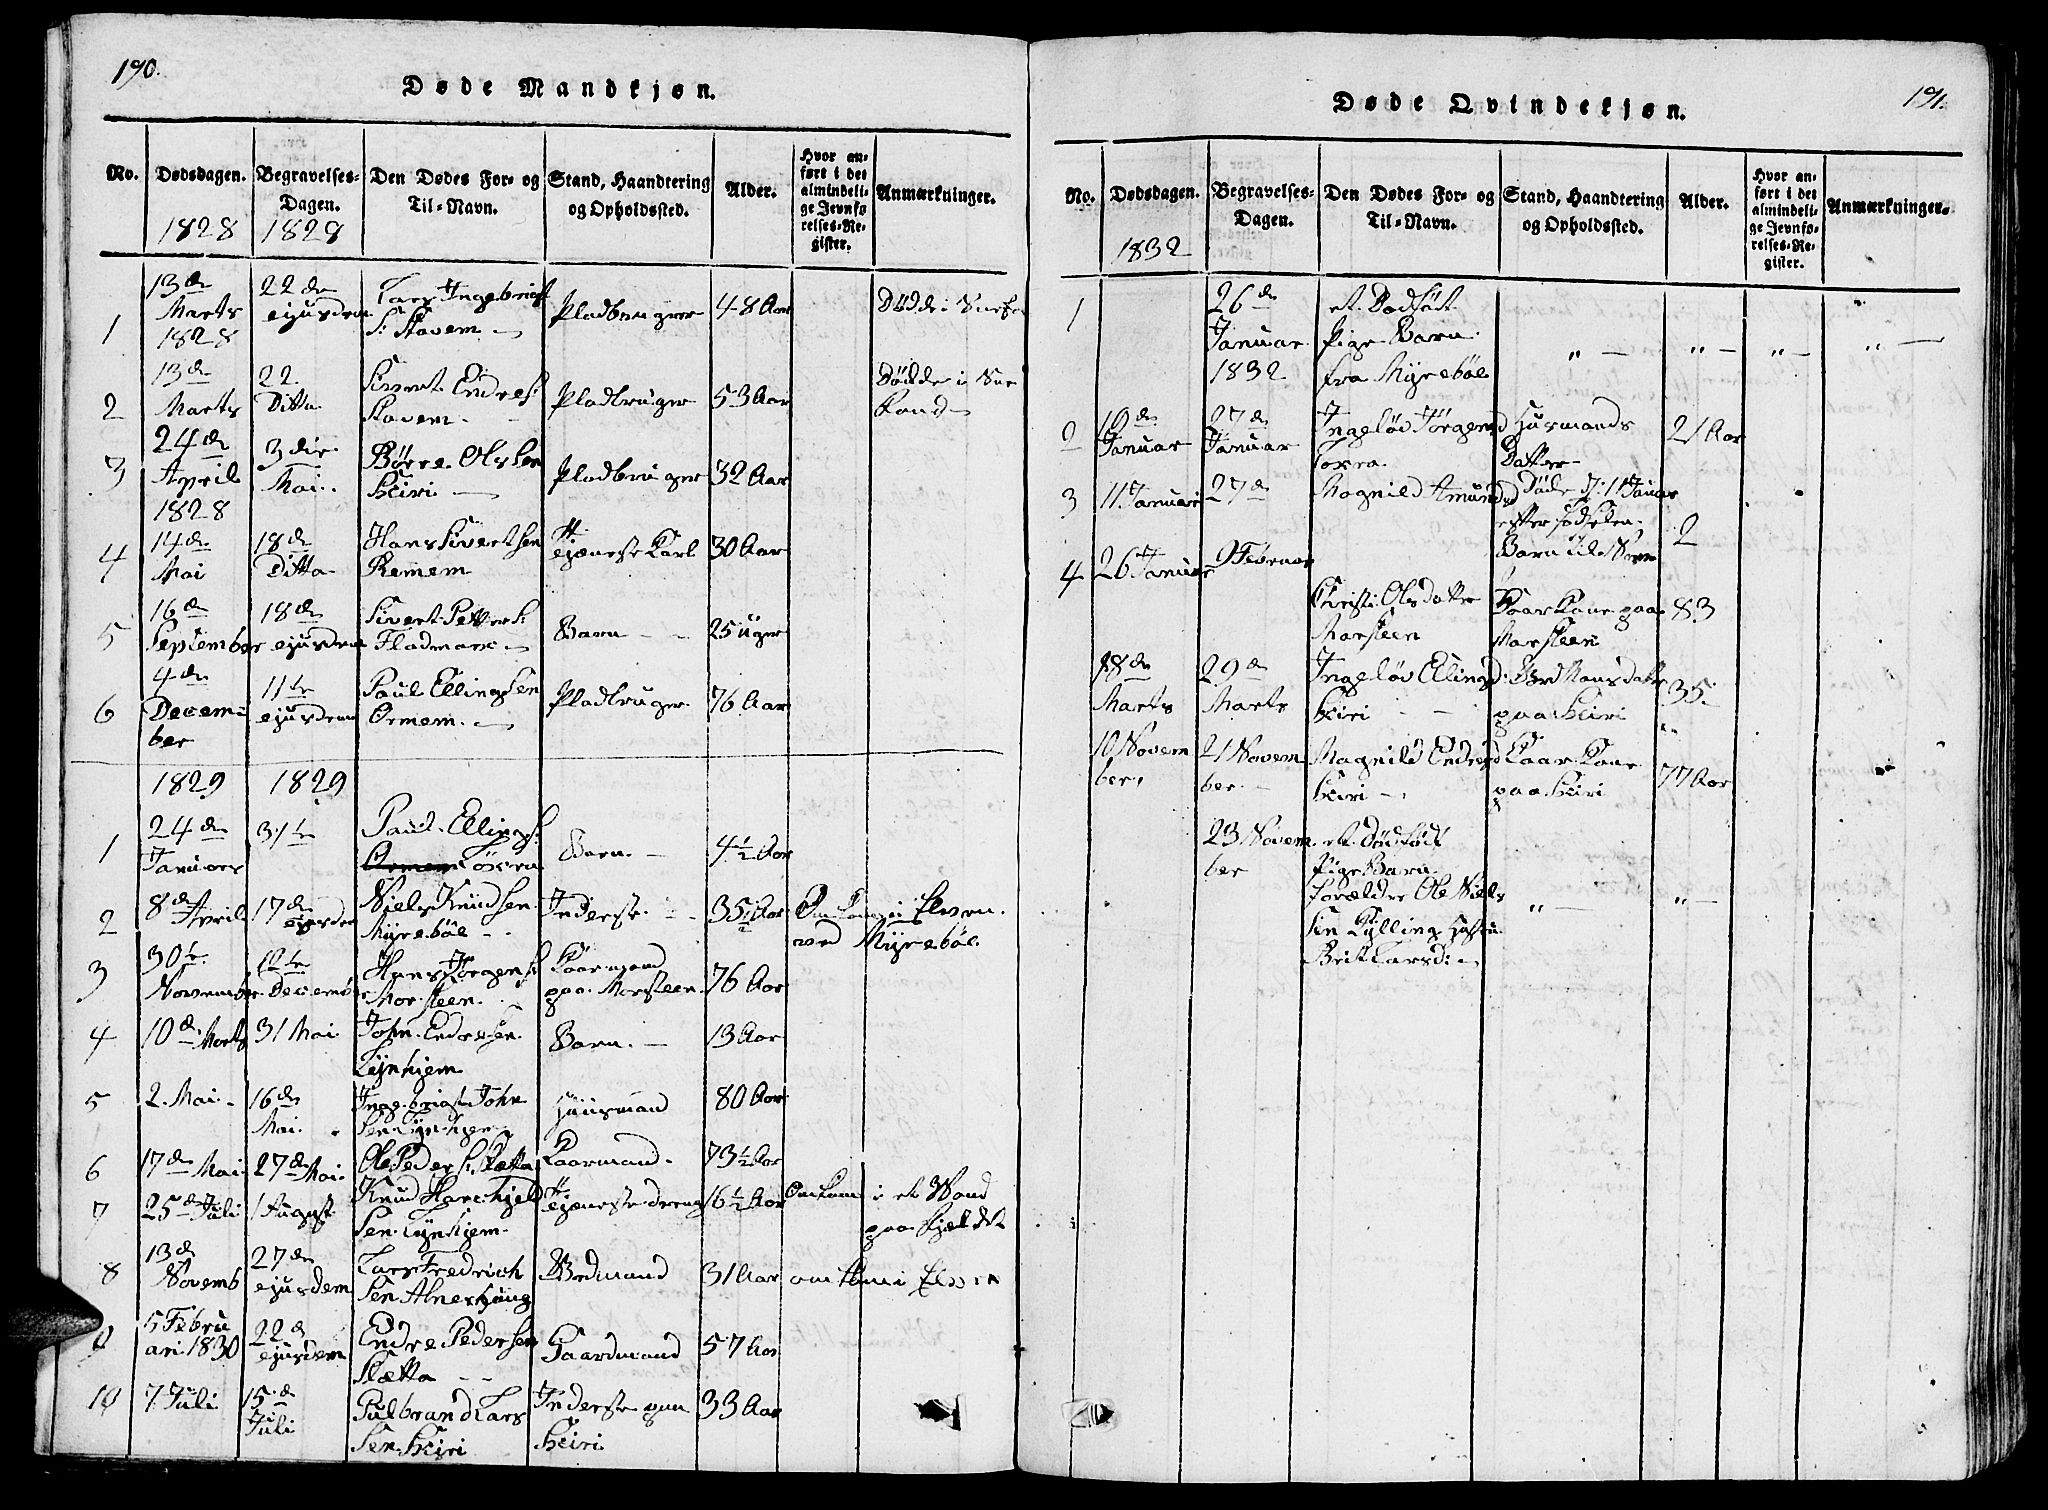 190.
Døde Mandkjøn.
No. Dødsdagen. Begravelses-Dagen. Den Dødes For- og Til-Navn. Stand, Haandtering og Opholdssted. Alder. Hvor anført i det almindelige Jevnførelses-Register. Anmærkninger.
1828 1828
1 13de Marts 1828 22de ejusdem Lars Ingebrigt S: Stavem Pladbruger 48 Aar Døde i
2 13de Marts 22 Ditto Sivert Endres: Stavem Pladbruger 53 Aar Døde i
3 24de April 1828 3die Mai Børre Olssen Kiri Pladbruger 32 Aar
4 14de Mai 18de Ditto Hans Sivertsen Remem Tjeneste Karl 30 Aar
5 16de September 18de ejusdem Sivert Petter S: Fladmark Barn 25 uger
6 4de December 11te ejusdem Paul Ellingsen Ormem Pladbruger 76 Aar
1829 1829
1 24de Januars 31te Paul Ellings: Barn 4½ Aar
2 8de April 17de ejusdem Niels Knudsen Myrebøl Inderste 35½ Aar Omkom i Elven ved Myrebøl
3 30te November 12te December Hans Jørgens: Morsteen Kaarmand paa Morsteen 76 Aar
4 10de Marts 31 Mai John Endresen Lynhjem Barn 13 Aar
5 2 Mai 16de Mai Ingebrigt John Sen Lynhjem Huusmand 80 Aar
6 17de Mai 27de Mai Ole Peder S: Sletta Kaarmand 73½ Aar
7 25de Juli 1 August Knud Sen Lynhjem Tjeneste dreng 16½ Aar Omkom i et Vand paa Fjældet
8 13de Novemb 27de ejusdem Lars Fredrich Sen Alnes 31 Aar omkom i Elven
9 5 Februari 1830 22de ejusdem Endre Pedersen Slætta Gaardmand 57 Aar
10 7 Juli 15de Juli Gulbrand Lars Sen Kiri Inderste paa Kiri 33 Aar
191.
Døde Qvindekjøn.
No. Dødsdagen. Begravelses-Dagen. Den Dødes For- og Til-Navn. Stand, Haandtering og Opholdssted. Alder. Hvor anført i det almindelige Jevnførelses-Register. Anmærkninger.
1832
1 26de Januar 1832 et Dødfødt Pige Barn fra Myrebøl " — " — " — " —
2 10de Januar 27de Januar Ingeløv Jørgensd Husmands Datter 21 Aar
3 11 Januar 27de Magnild Amundsd Døde d: 11 Januar efter fødselen
4 26 Januar 9 Februar Barn 2
Christi Olsdatter Marsteen Kaar Kone paa Marsteen 83
18de Marts 29de Marts Ingeløv Ellingsd: Kiri paa Kiri 35
10 November 21 November Magnild Endresd Kiri Kaar Kone paa Kiri 77 Aar
23 November et dødfødt Pige Barn Forældre Ole Niels Sen Kylling Hustru Brit Larsd: " — " —